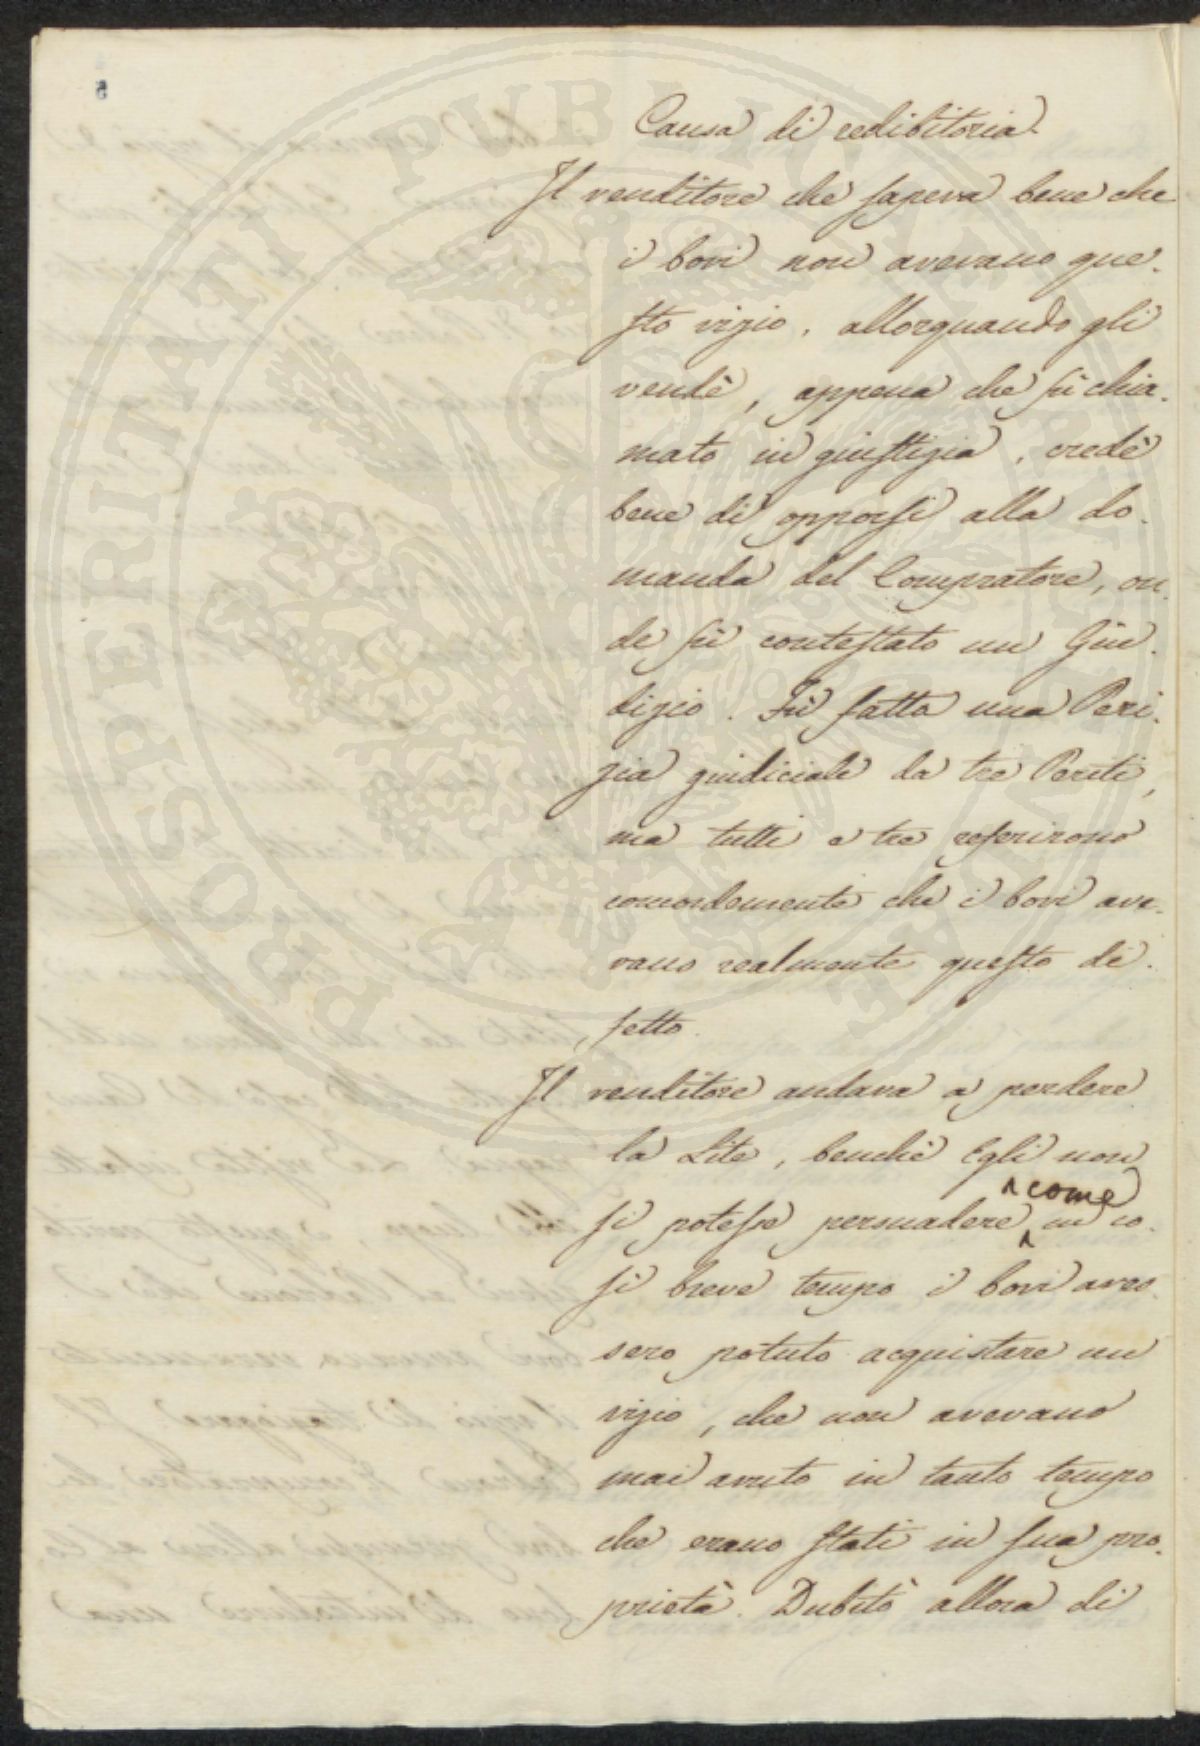 Causa di redibitoria.
Il venditore che sapeva bene che
i bovi non avevano que-
sto vizio, allorquando gli
vendè, appena che fù chia-
mato in giustizia, credè
bene di opporsi alla do-
manda del Compratore, on-
de fù contestato un Giu-
dizio. Fù fatta una Peri-
zia giudiciale da tre Periti,
ma tutti e tre referirono
concordemente che i bovi ave-
vano realmente questo di-
fetto.
Il venditore andava a perdere
la Lite, benchè Egli non
come
si potesse persuadere in co-
sì breve tempo i bovi aves-
sero potuto acquistare un
vizio, che non avevano
mai avuto in tanto tempo
che erano stati in sua pro-
prietà. Dubitò allora di
PROSPERITATI PUBLICAE